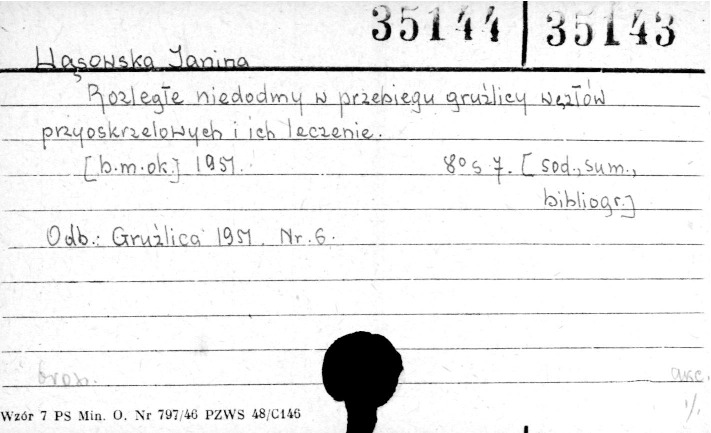 35144 | 35143
Wąsowska Janina
Rozległe niedodmy w przebiegu gruźlicy węzłów
przyoskrzelowych i ich leczenie.
[b.m.ok.] 1951. 8° s 7. [sod., sum.,
bibliogr.]
Odb.: Gruźlica 1951. Nr. 6.
brosz.
akc.
Wzór 7 PS Min. O. Nr 797/46 PZWS 48/C146